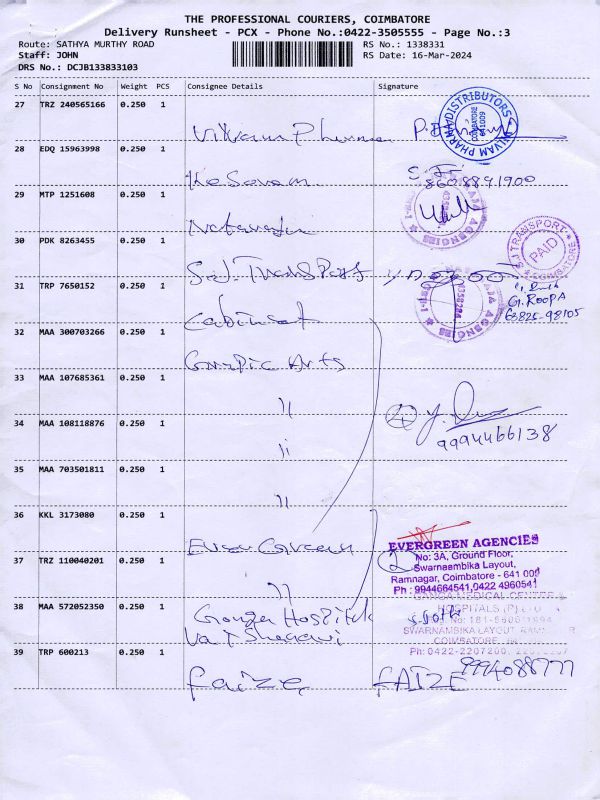 THE PROFESSIONAL COURIERS, COIMBATORE
Delivery Runsheet - PCX - Phone No.:0422-3505555 - Page No.:3
Route: SATHYA MURTHY ROAD RS No.: 1338331
Staff: JOHN RS Date: 16-Mar-2024
DRS No.: DCJB133833103
S No Consignment No Weight PCS Consignee Details Signature
27 TRZ 240565166 0.250 1
28 EDQ 15963998 0.250 1
Kesavam 8608891900
29 MTP 1251608 0.250 1
30 PDK 8263455 0.250 1
S.J. Transport
S.J TRANSPORT PAID COIMBATORE
31 TRP 7650152 0.250 1
Cabinet
G. ROOPA
63825-98105
32 MAA 300703266 0.250 1
Arts
33 MAA 107685361 0.250 1
34 MAA 108118876 0.250 1
9994466138
35 MAA 703501811 0.250 1
36 KKL 3173080 0.250 1
Ever Green
EVERGREEN AGENCIES
No: 3A, Ground Floor,
Swarnaambika Layout,
Ramnagar, Coimbatore - 641 009
Ph : 9944664541,0422 4960541
37 TRZ 110040201 0.250 1
38 MAA 572052350 0.250 1
Ganga Hospital
GANGA MEDICAL CENTRE
HOSPITALS (P) LTD
SWARNAMBIKA LAYOUT, RAM
COIMBATORE
Ph: 0422-2207200,
39 TRP 600213 0.250 1
Faize FAIZE 9994088777